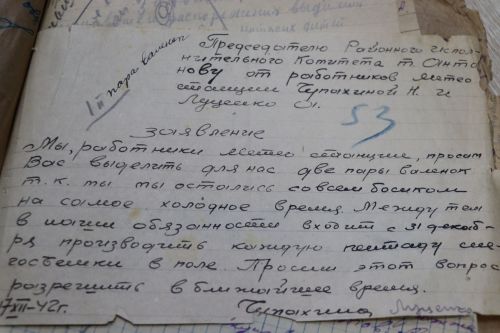 распоряжения выделить
детей
1 пара валенок
Председателю Районного Испол-
нительного Комитета т. Анто-
нову от работников метео
станции Чупахиной Н. и
Луценко О.
53
заявление
Мы, работники метео станции, просим
Вас выделить для нас две пары валенок
т.к. мы мы остались совсем босиком
на самое холодное время. Между тем
в наши обязанности входит с 31 декаб-
ря производить каждую пентаду сне-
госъемки в поле. Просим этот вопрос
разрешить в ближайшее время.
7/XII-42г. Чупахина Луценко